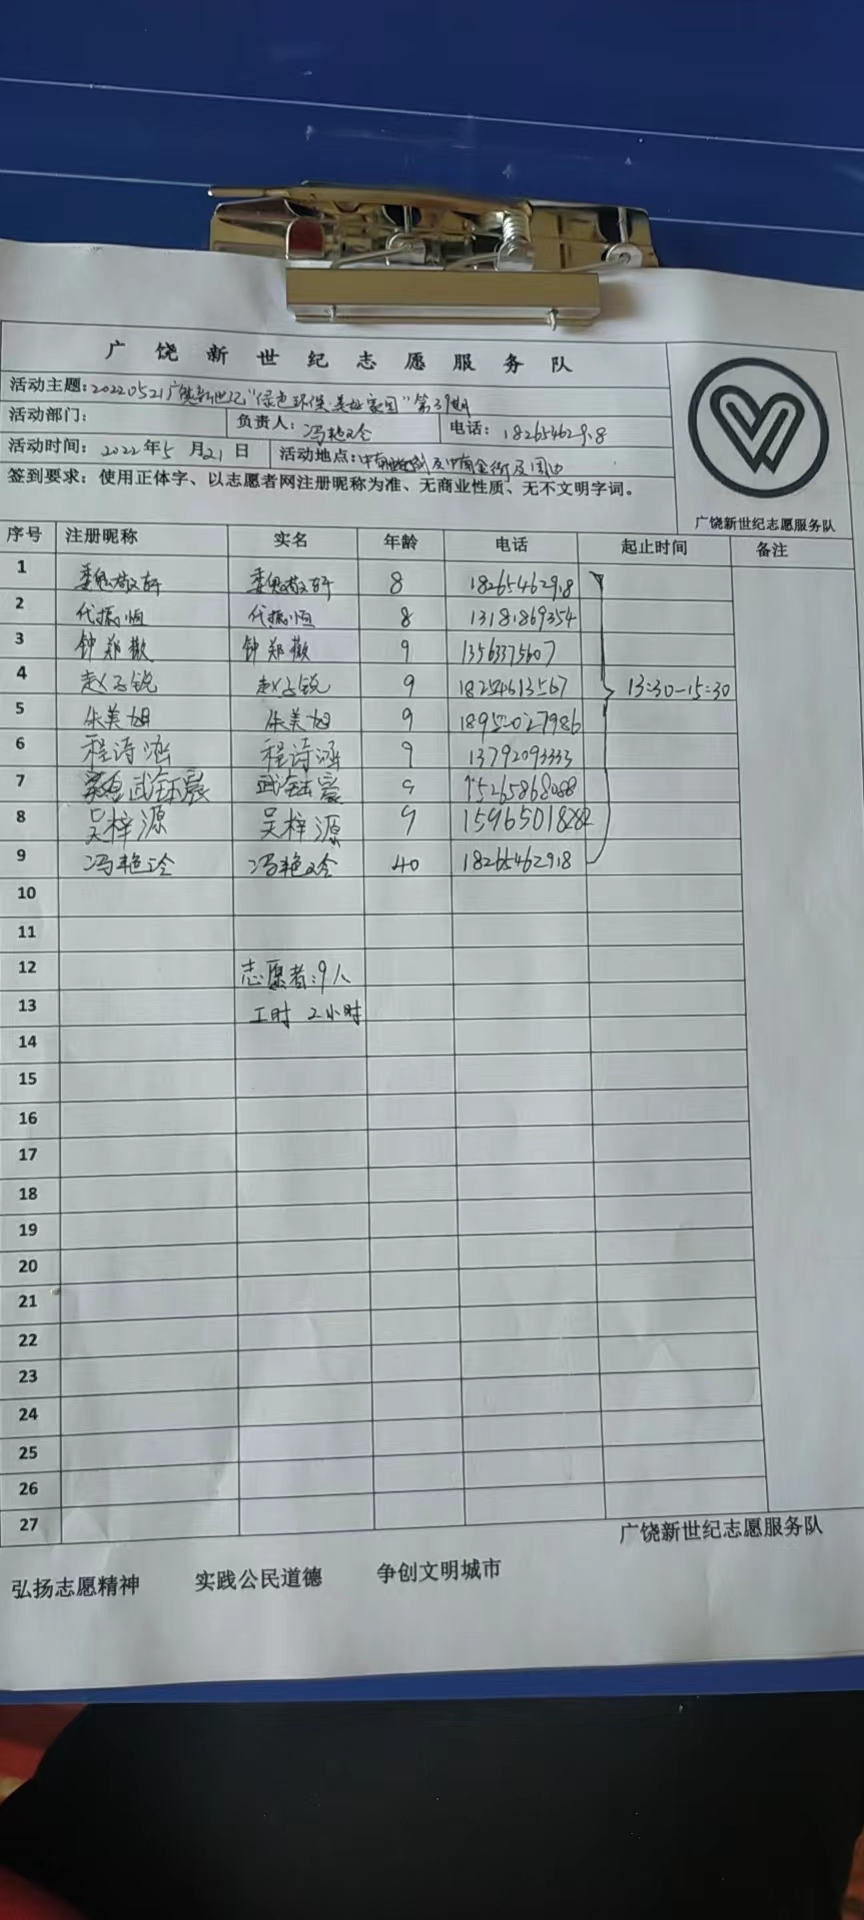 广饶新世纪志愿服务队
活动主题:20220521广饶新世纪"绿色环保·美好家园"第39期
活动部门: 负责人:冯艳玲 电话:18265462918
活动时间:2022年5月21日 活动地点:中南世纪城及中南金街及周边
签到要求:使用正体字、以志愿者网注册昵称为准、无商业性质、无不文明字词。
广饶新世纪志愿服务队
序号 注册昵称 实名 年龄 电话 起止时间 备注
1 魏敬轩 魏敬轩 8 18265462918
2 代振恒 代振恒 8 13181869354
3 钟郑歡 钟郑歡 9 13563375607
4 赵子锐 赵子锐 9 18254613567 13:30-15:30
5 朱美旭 朱美旭 9
6 程诗涵 程诗涵 9 13792093333
7 武钰宸 武钰宸 9 15265868088
8 吴梓源 吴梓源 9 15965018282
9 冯艳玲 冯艳玲 40 18265462918
10
11
12 志愿者:9人
13 工时 2小时
14
15
16
17
18
19
20
21
22
23
24
25
26
27
广饶新世纪志愿服务队
弘扬志愿精神 实践公民道德 争创文明城市